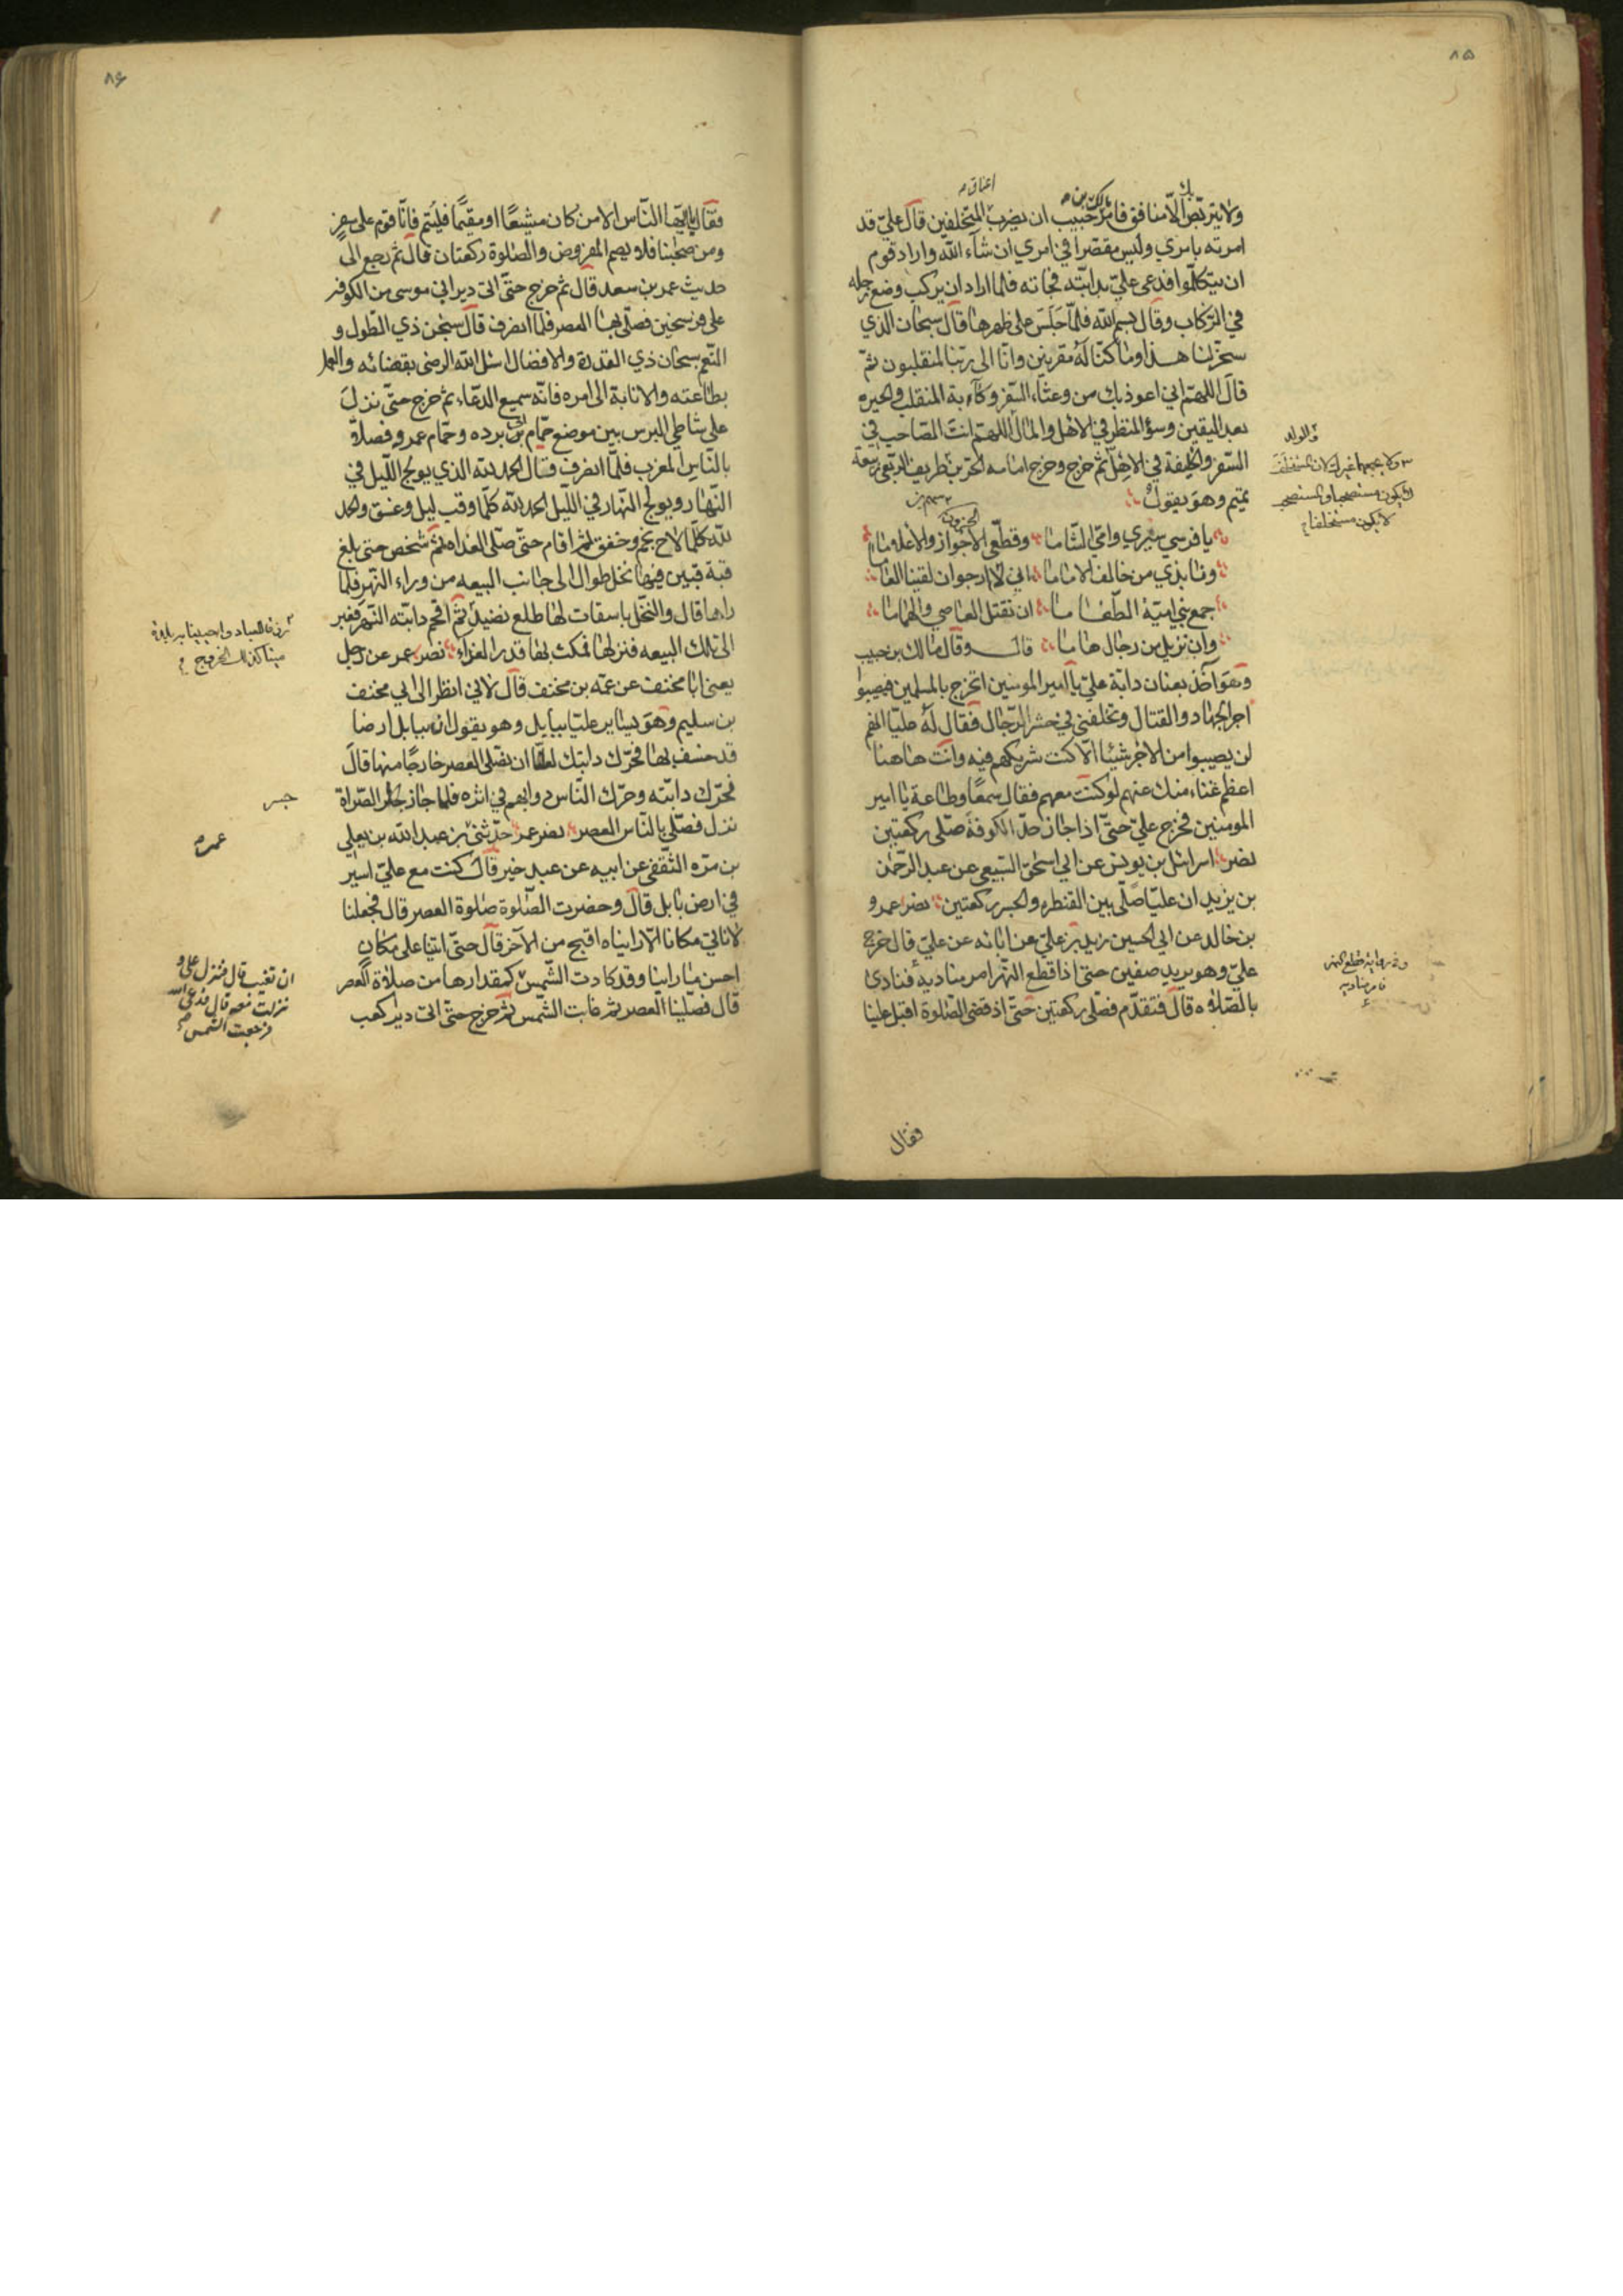 ٨٥
ولا يتربص بك الا منافق فامر مالك بن حبيب ان يضرب اعناق المتخلفين قال علي قد
امرته بامري وليس مقصرا في امري ان شآء الله واراد قوم
ان يتكلموا فدعى علي بدابته فجاته فلما اراد ان يركب وضع رجله
في الركاب وقال بسم الله فلمّا جَلَسَ على ظهرها قال سبحان الذي
سخر لنا هذا وما كنّا لَهُ مقرنين وانّا الى ربّنا لمنقلبون ثمّ
قالَ اللهمّ اني اعوذ بك من وعثاء السّفر وكآبة المنقلب والحيره
بعد اليقين وسؤ المنظر في الاهل والمال اللهمّ انت الصّاحب في
السّفر والخليفة في الاهل ثم خرج وخرج امامه الحرّ بن طريف الربعي ربيعة
تميم وهو يقول
يا فرسي سيري وامّي الشّاما وقطّعي الاجواز والاعلاما
ونابذي من خالف الاماما اني لارجو ان لقينا العاما
جمع بني اميّة الطّغاما ان نقتل العاصي والهماما
وان نزيل من رجال هاما قال وقال مالك بن حبيب
وهو آخذ بعنان دابّة عليّ يا امير المومنين اتخرج بالمسلمين فيصيبوا
اجر الجهاد والقتال وتخلفني في حشر الرّجال فقال لَهُ عليّا انهم
لن يصيبوا من الاجر شيئا الّا كنت شريكهم فيه وانت هاهنا
اعظم غناء منك عنهم لو كنت معهم فقال سمعًا وطاعة يا امير
المومنين فخرج عليّ حتّى اذا جاز حدّ الكوفة صلّى ركعتين
نصر اسرائل بن يونس عن ابي اسحٰق السّبيعي عن عبد الرّحمٰن
بن يزيد ان عليّا صلّى بين القنطره والجسر ركعتين نصر عمرو
بن خالد عن ابي الحسين زيد بن علي عن ابائه عن عليّ قال خرج
عليّ وهو يريد صفين حتى اذا قطع النّهر امر مناديه فنادى
بالصّلاه قال فتقدّم فصلّى ركعتين حتّى اذ قضى الصّلوة اقبل علينا
والولد
ولا يجمعهما غيرك لان المستخلف
لا يكون مستصحبا والمستصحب
لا يكون مستخلفا
قطع النهر
فامر مناديه
فقال
٨۶
فقال يا ايّها النّاس الا من كان مشيّعًا او مقيمًا فليُتم فانّا قوم على سفرٍ
ومن صحبنا فلا يصم المفروض والصّلوة ركعتان قال ثم رجع الى
حديث عمر بن سعد قال ثم خرج حتّى اتى دير ابي موسى من الكوفه
على فرسخين فصلّى بها العصر فلمّا انصرف قال سبحٰن ذي الطّول و
النّعم سبحان ذي القدرة والافضال اسئل الله الرضى بقضائه والعمل
بطاعته والانابة الى امره فانّه سميع الدّعاء ثم خرج حتّى نزل
على شاطي البرس بين موضع حمّام ابي برده وحمّام عمر فصلّا
بالنّاس المغرب فلمّا انصرف قال الحمد لله الذي يولج اللّيل في
النّهار ويولج النّهار في اللّيل الحمد لله كلّما وقب ليل وغسق والحمد
لله كلّما لاح نجم وخفق ثم اقام حتّى صلّى الغداه ثم شخص حتى بلغ
قبة قبين فيها نخل طوال الى جانب البيعه من وراء النّهر فلما
راها قال والنّخل باسقات لها طلع نضيد ثمّ اقحم دابّته النّهر فعبر
الى تلك البيعه فنزلها فمكث بها قدر الغداء نصر عمر عن رجل
يعني ابا مخنف عن عمّه بن مخنف قال لاني انظر الى ابي مخنف
بن سليم وهو يساير عليّا ببابل وهو يقول ان ببابل ارضا
قد خسف بها فحرّك دابتك لعلّنا ان نصلّى العصر خارجًا منها قال
فحرّك دابّته وحرّك النّاس دوابهم في اثره فلما جاز الصّراة
نزل فصلّى بالنّاس العصر نصر عمر حدّثني بن عبد الله بن يعلى
بن مرّه الثّقفي عن ابيه عن عبد خير قال كنت مع عليّ اسير
في ارض بابل قال وحضرت الصّلوة صلوة العصر قال فجعلنا
لا ناتي مكانا الّا رايناه اقبح من الآخر قال حتّى اتينا على مكان
احسن ما راينا وقد كادت الشّمس كمقدارها من صلاة العصر
قال فصلّينا العصر ثم غابت الشّمس ثم خرج حتّى اتى دير كعب
جسر
عمره
ان تغيب قال فنزل علي و
نزلت معه قال فدعى الله
فرجعت الشمس